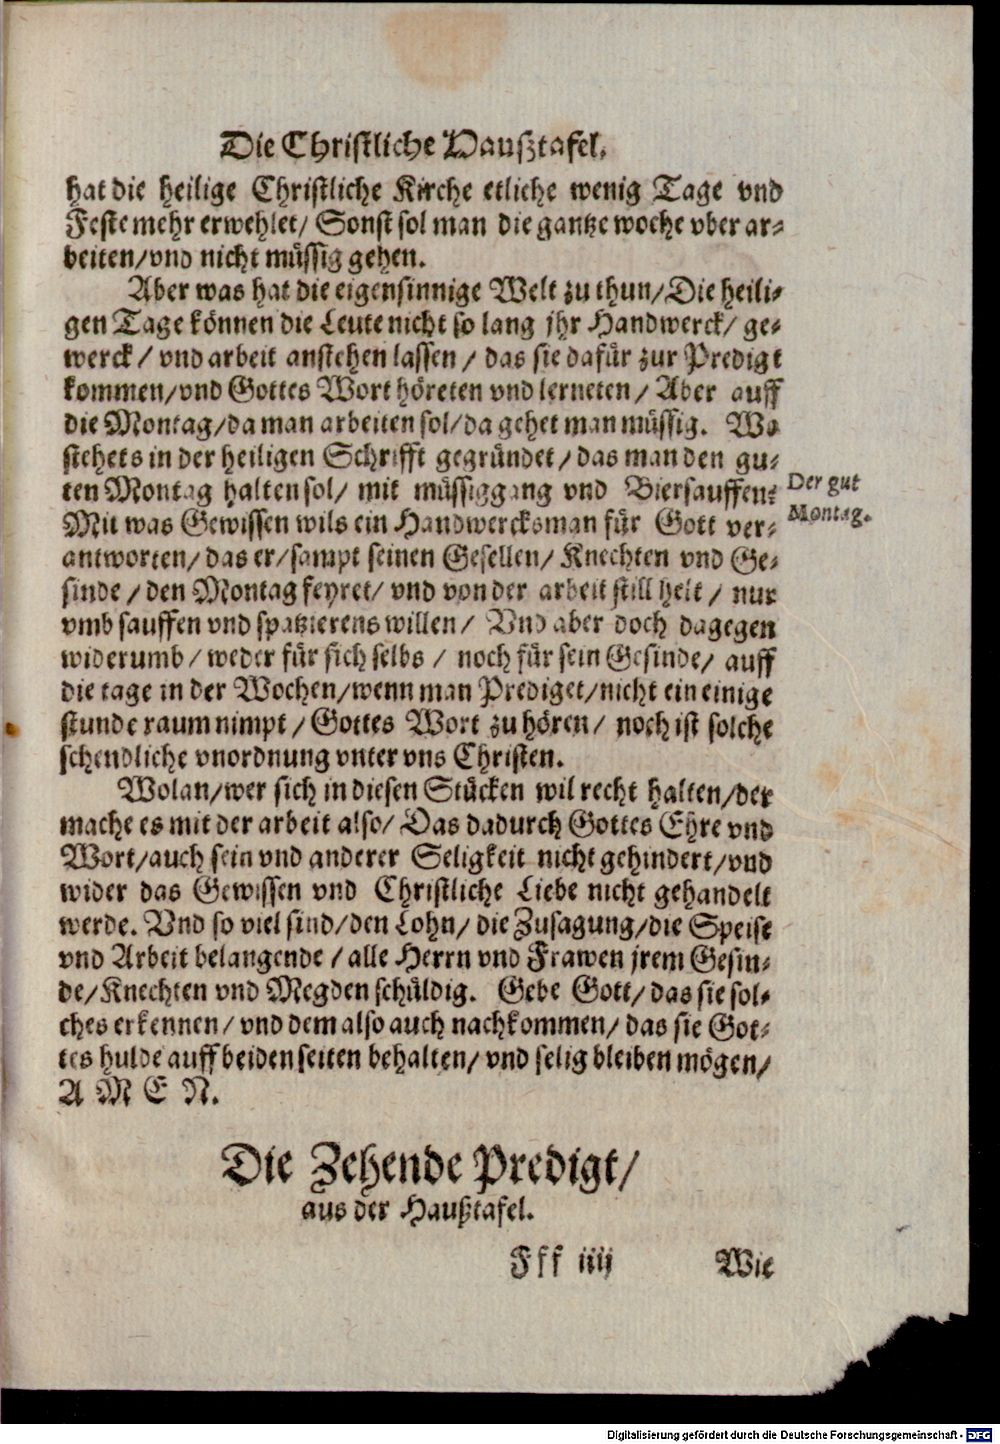 Die Christliche Haußtafel.
hat die heilige Christliche Kirche etliche wenig Tage vnd
Feste mehr erwehlet/ Sonst sol man die gantze woche vber ar-
beiten/vnd nicht müssig gehen.
Aber was hat die eigensinnige Welt zu thun/Die heili-
gen Tage können die Leute nicht so lang jhr Handwerck/ ge-
werck/ vnd arbeit anstehen lassen/ das sie dafür zur Predigt
kommen/vnd Gottes Wort höreten vnd lerneten/ Aber auff
die Montag/da man arbeiten sol/da gehet man müssig. Wo
stehets in der heiligen Schrifft gegründet/das man den gu-
ten Montag halten sol/ mit müssiggang vnd Biersauffen?
Der gut
Montag.
Mit was Gewissen wils ein Handwercksman für Gott ver-
antworten/das er/sampt seinen Gesellen/ Knechten vnd Ge-
sinde/den Montag feyret/ vnd von der arbeit still helt/ nur
vmb sauffen vnd spatzierens willen/ Vnd aber doch dagegen
widerumb/weder für sich selbs/ noch für sein Gesinde/ auff
die tage in der Wochen/wenn man Prediget/nicht ein einige
stunde raum nimpt/Gottes Wort zu hören/ noch ist solche
schendliche vnordnung vnter vns Christen.
Wolan/wer sich in diesen Stücken wil recht halten/der
mache es mit der arbeit also/ Das dadurch Gottes Ehre vnd
Wort/auch sein vnd anderer Seligkeit nicht gehindert/vnd
wider das Gewissen vnd Christliche Liebe nicht gehandelt
werde. Vnd so viel sind/den Lohn/ die Zusagung/die Speise
vnd Arbeit belangende/alle Herrn vnd Frawen jrem Gesin-
de/Knechten vnd Megden schüldig. Gebe Gott/das sie sol-
ches erkennen/ vnd dem also auch nachkommen/ das sie Got-
tes hulde auff beiden seiten behalten/ vnd selig bleiben mögen/
A M E N.
Die Zehende Predigt/
aus der Haußtafel.
Fff iiij Wie
Digitalisierung gefördert durch die Deutsche Forschungsgemeinschaft - DFG